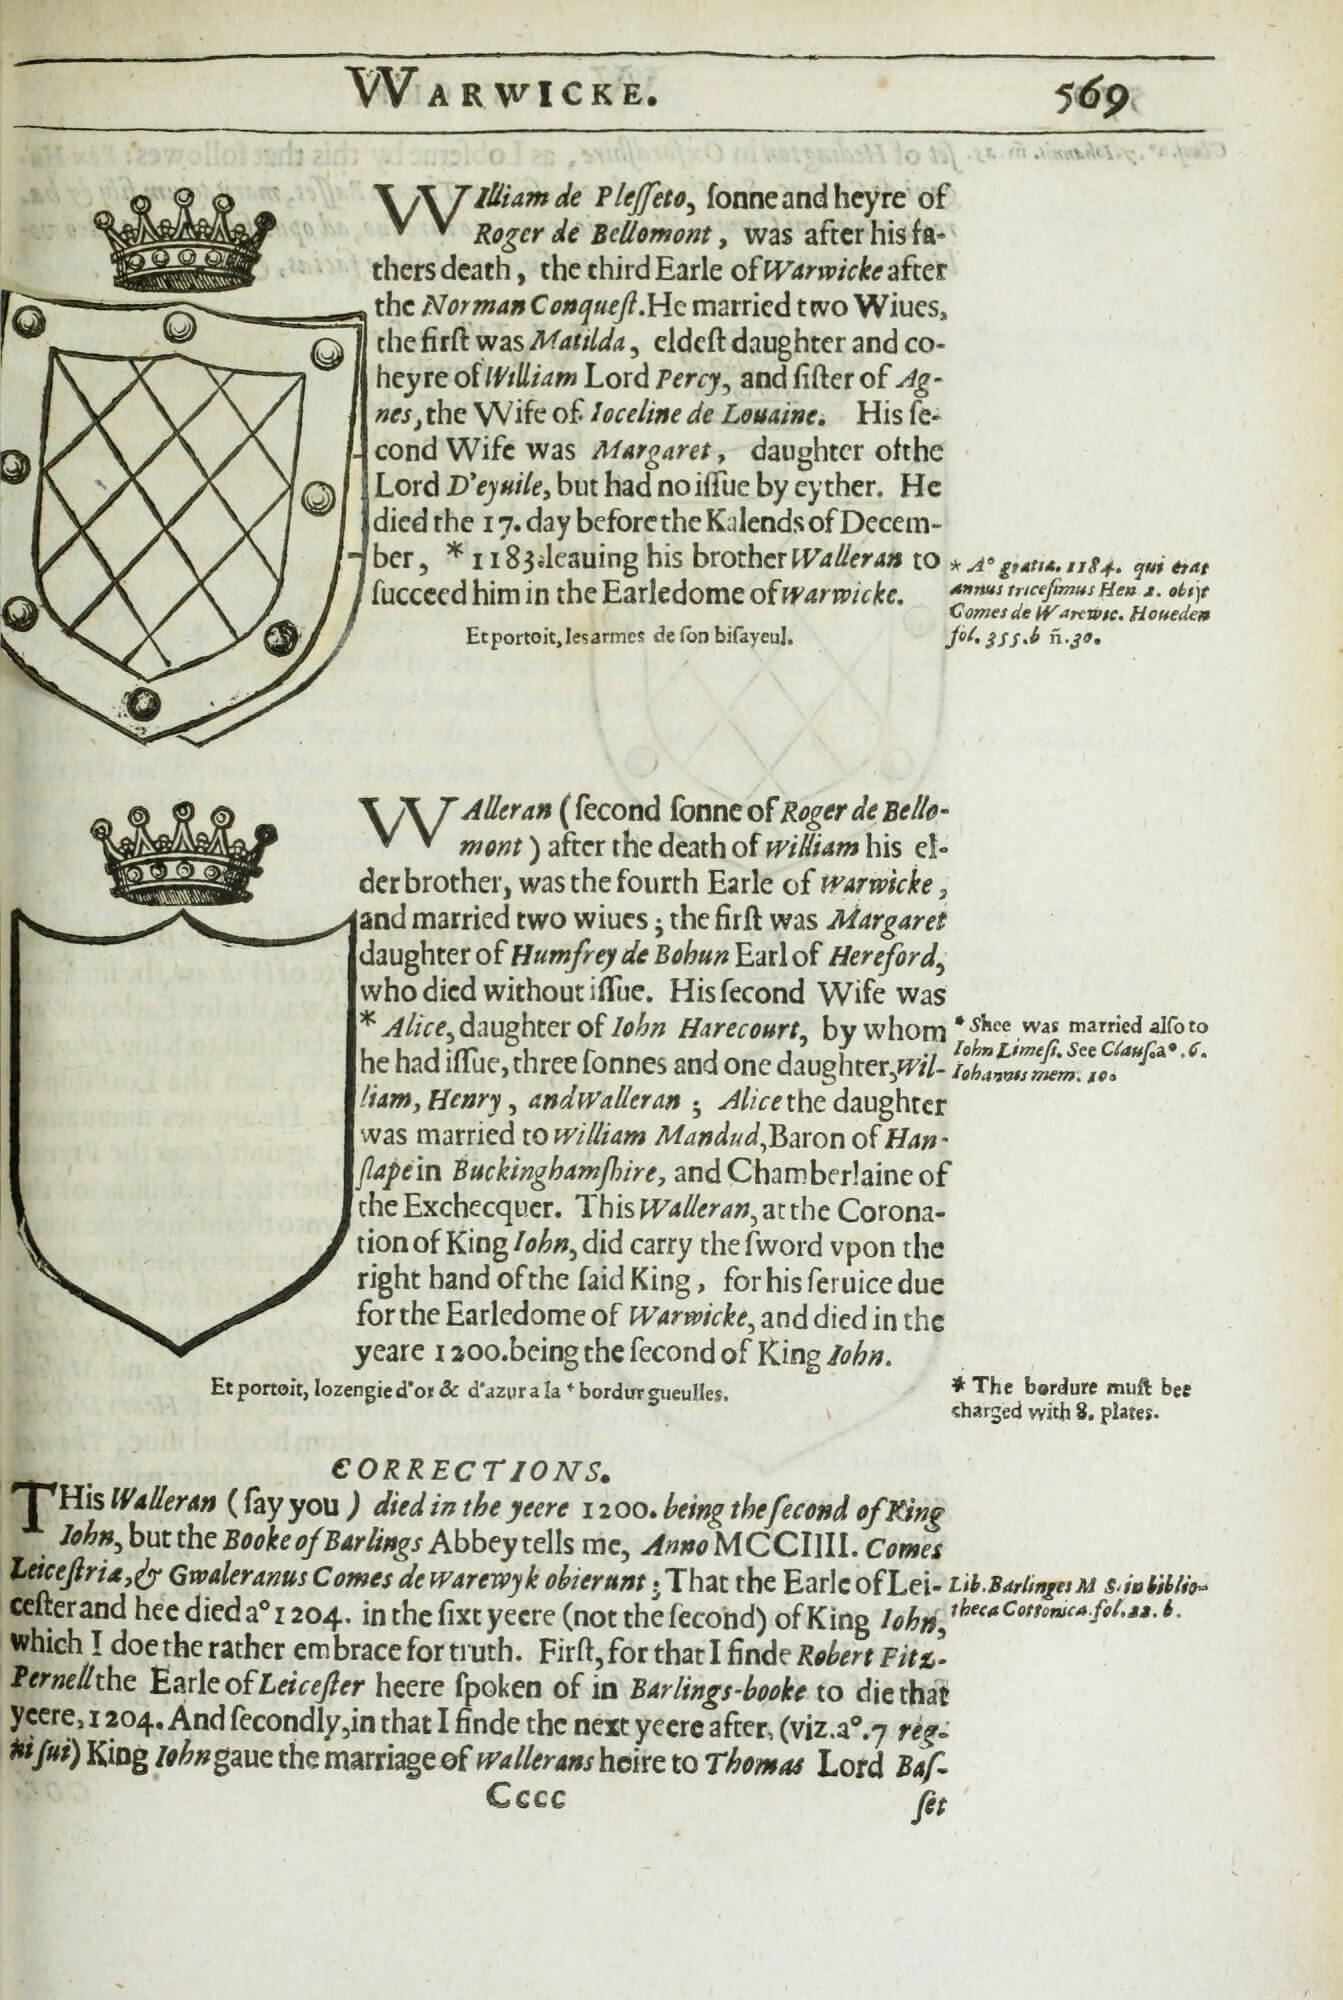 WARWICKE. 569
WIlliam de Plesseto, ſonne and heyre of
Roger de Bellomont, was after his fa-
thers death, the third Earle of Warwicke after
the Norman Conqueſt. He married two Wiues,
the firſt was Matilda, eldeſt daughter and co-
heyre of William Lord Percy, and ſiſter of Ag-
nes, the Wife of Ioceline de Louaine. His ſe-
cond Wife was Margaret, daughter of the
Lord D'eyuile, but had no iſſue by eyther. He
died the 17. day before the Kalends of Decem-
ber, * 1183. leauing his brother Walleran to
ſucceed him in the Earledome of Warwicke.
Et portoit, les armes de ſon biſayeul.
* A° gratia. 1184. qui erat
annus triceſimus Hen 2. obijt
Comes de Warewic. Houeden
fol. 355. b ñ. 30.
WAlleran (ſecond ſonne of Roger de Bello-
mont) after the death of William his el-
der brother, was the fourth Earle of Warwicke,
and married two wiues; the firſt was Margaret
daughter of Humfrey de Bohun Earl of Hereford,
who died without iſſue. His ſecond Wife was
* Alice, daughter of Iohn Harecourt, by whom
he had iſſue, three ſonnes and one daughter, Wil-
liam, Henry, and Walleran; Alice the daughter
was married to William Mandud, Baron of Han-
ſlape in Buckinghamſhire, and Chamberlaine of
the Exchecquer. This Walleran, at the Corona-
tion of King Iohn, did carry the ſword vpon the
right hand of the ſaid King, for his ſeruice due
for the Earledome of Warwicke, and died in the
yeare 1200. being the ſecond of King Iohn.
* Shee was married alſo to
Iohn Limeſi. See Clauſ. a°. 6.
Iohannis mem. 10.
Et portoit, lozengie d'or & d'azur a la * bordur gueulles.
* The bordure muſt bee
charged with 8. plates.
CORRECTIONS.
THis Walleran (ſay you) died in the yeere 1200. being the ſecond of King
Iohn, but the Booke of Barlings Abbey tells me, Anno MCCIIII. Comes
Leiceſtriæ, & Gwaleranus Comes de Warewyk obierunt; That the Earle of Lei-
ceſter and hee died a° 1204. in the ſixt yeere (not the ſecond) of King Iohn,
which I doe the rather embrace for truth. Firſt, for that I finde Robert Fitz-
Pernell the Earle of Leiceſter heere ſpoken of in Barlings-booke to die that
yeere, 1204. And ſecondly, in that I finde the next yeere after, (viz. a°. 7 reg-
ni ſui) King Iohn gaue the marriage of Wallerans heire to Thomas Lord Baſ-
Lib. Barlinges M S. in biblio-
theca Cottonica. fol. 22. b.
Cccc ſet